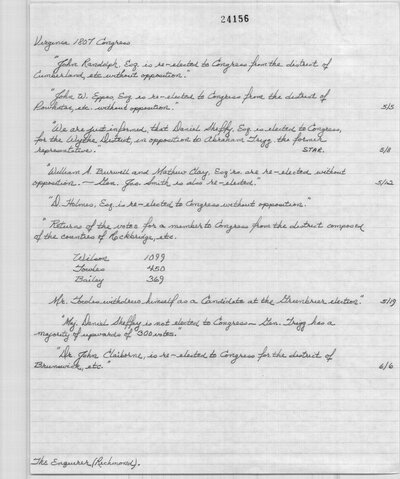 24156
Virginia 1807 Congress
"John Randolph, Esq. is re-elected to Congress from the district of
Cumberland, etc. without opposition."
"John W. Eppes, Esq. is re-elected to Congress from the district of
Powhatan, etc. without opposition." 5/5
"We are just informed, that Daniel Sheffy, Esq. is elected to Congress,
for the Wythe District, in opposition to Abraham Trigg, the former
representative. STAR. 5/8
"William A. Burwell and Mathew Clay, Esq'rs. are re-elected without
opposition. — Gen. Jno. Smith is also re-elected." 5/12
"D. Holmes, Esq. is re-elected to Congress without opposition."
"Returns of the votes for a member to Congress from the district composed
of the counties of Rockbridge, etc.
Wilson 1099
Towles 450
Bailey 369
Mr. Towles withdrew himself as a Candidate at the Greenbrier election." 5/19
"Maj. Daniel Sheffey is not elected to Congress — Gen. Trigg has a
majority of upwards of 300 votes."
"Dr. John Claiborne, is re-elected to Congress for the district of
Brunswick, etc." 6/6
The Enquirer (Richmond).